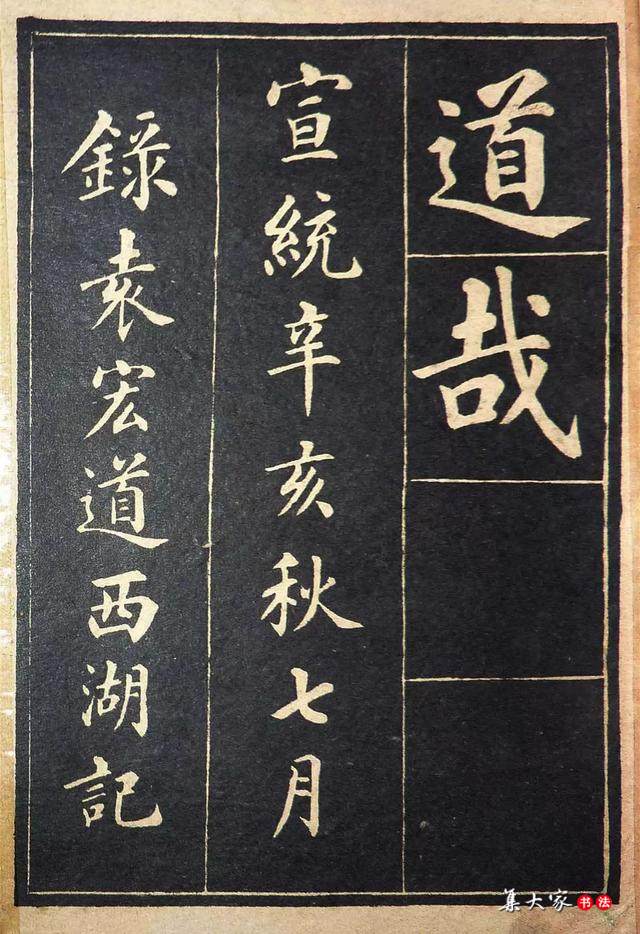 道哉
宣統辛亥秋七月
錄袁宏道西湖記
集大家书法